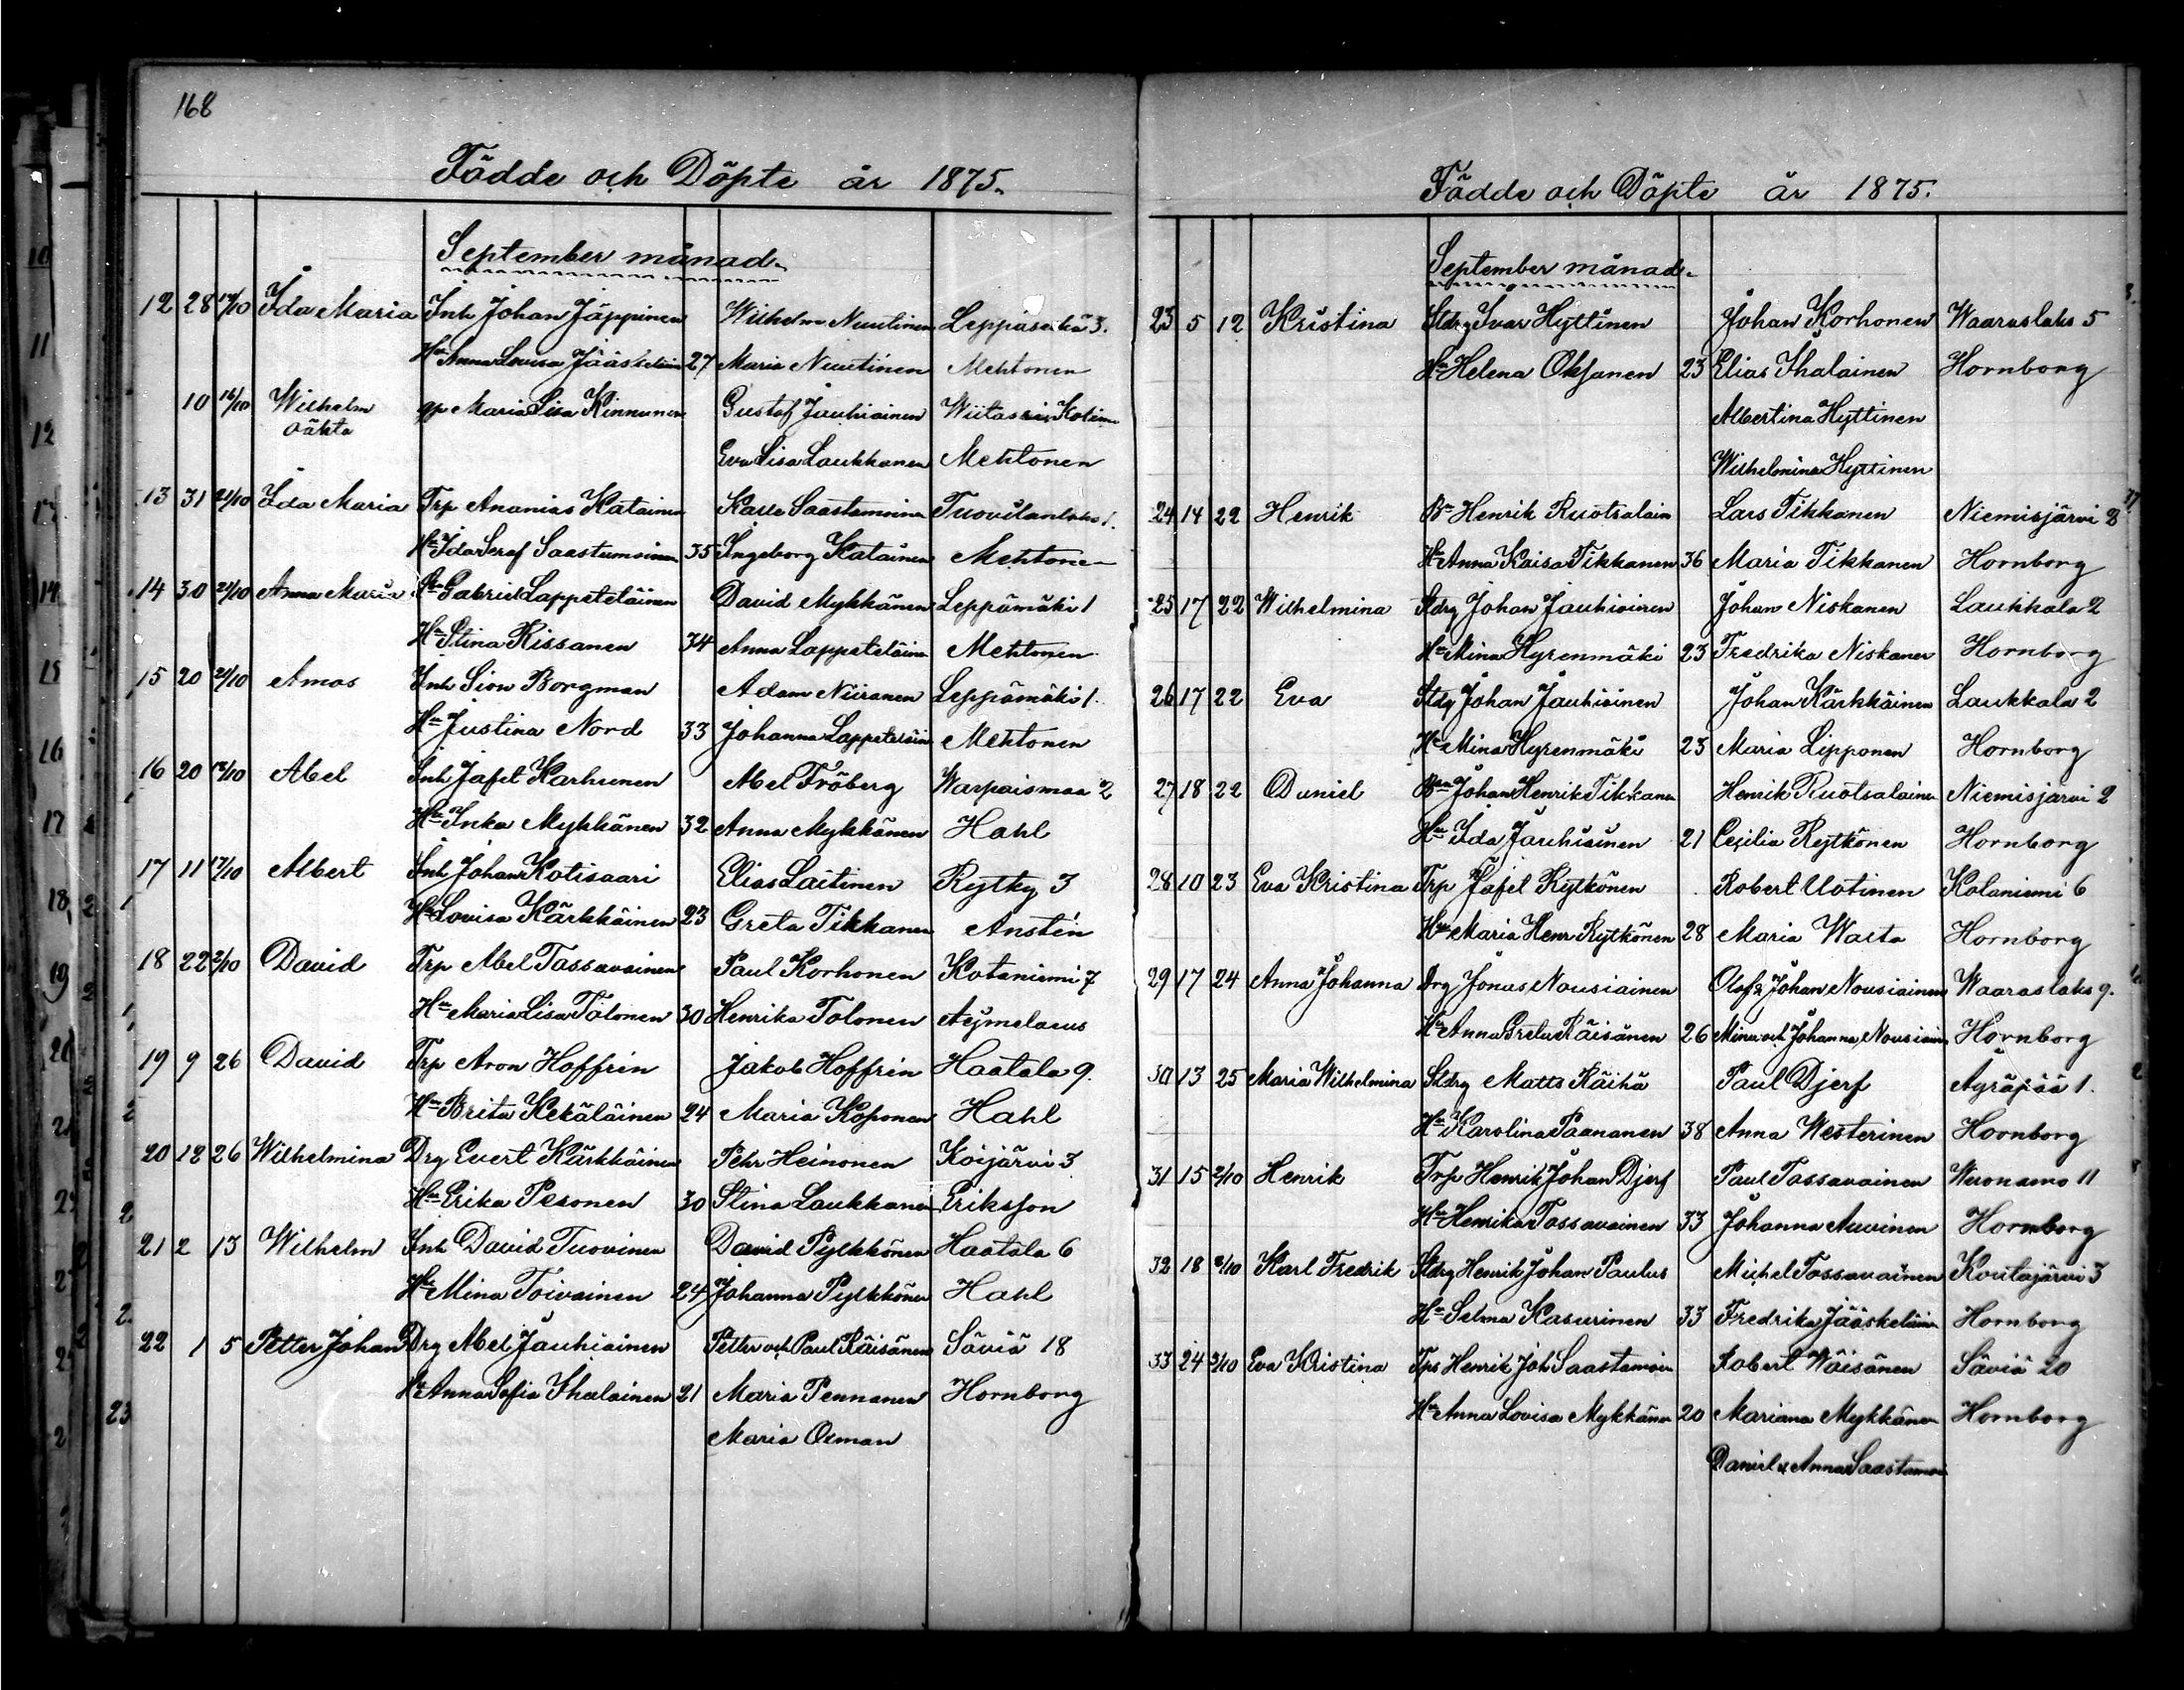 168
Födde och Döpte år 1875.
September månad.
12 28 17/10 Ida Maria Inh Johan Jäppinen Wilhelm Nuutinen Leppäselkä 3.
Hu Anna Lovisa Jääskeläin 27 Maria Nuutinen Mehtonen
10 16/10 Wilhelm qp Maria Lisa Kinnunen Gustaf Jauhiainen Wiitasaari Kolima
oäkta
Eva Lisa Laukkanen Mehtonen
13 31 21/10 Ida Maria Trp Ananias Katainen Kalle Saastamoinen Tuovilanlaks 1.
Hu Ida Seraf Saastamoinen 35 Ingeborg Katainen Mehtonen
14 30 21/10 Anna Maria Gabriel Lappeteläinen David Mykkänen Leppämäki 1
Hu Stina Rissanen 34 Anna Lappeteläinen Mehtonen
15 20 21/10 Amos Inh Sion Borgman Adam Niiranen Leppämäki 1.
Hu Justina Nord 33 Johanna Lappeteläin Mehtonen
16 20 17/10 Abel Inh Jafet Karhunen Abel Fröberg Warpaismaa 2
Hu Inka Mykkänen 32 Anna Mykkänen Hahl
17 11 17/10 Albert Inh Johan Kotisaari Elias Laitinen Rytky 3
Hu Lovisa Kärkkäinen 23 Greta Tikkanen Anstén
18 22 2/10 David Trp Abel Tassavainen Paul Korhonen Kotaniemi 7
Hu Maria Lisa Tolonen 30 Henrika Tolonen Aejmelaeus
19 9 26 David Trp Aron Hoffrin Jakob Hoffrin Haatala 9.
Hu Brita Kekäläinen 24 Maria Koponen Hahl
20 12 26 Wilhelmina Drg Evert Kärkkäinen Pehr Heinonen Koijärvi 3
Hu Erika Pesonen 30 Stina Laukkanen Eriksson
21 2 13 Wilhelm Inh David Tuovinen David Pylkkönen Haatala 6
Hu Mina Toivainen 24 Johanna Pylkkönen Hahl
22 1 5 Petter Johan Drg Abel Jauhiainen Petter och Paul Räisänen Säviä 18
Hu Anna Sofia Ihalainen 21 Maria Pennanen Hornborg
Maria Osman
Födde och Döpte år 1875.
September månad.
23 5 12 Kristina Stdrg Ivar Hyttinen Johan Korhonen Waaraslaks 5
Hu Helena Oksanen 23 Elias Ihalainen Hornborg
Albertina Hyttinen
Wilhelmina Hyttinen
24 14 22 Henrik Bn Henrik Ruotsalain Lars Tikkanen Niemisjärvi 2
Hu Anna Kaisa Tikkanen 36 Maria Tikkanen Hornborg
25 17 22 Wilhelmina Stdrg Johan Jauhiainen Johan Niskanen Laukkala 2
Hu Mina Hyrenmäki 23 Fredrika Niskanen Hornborg
26 17 22 Eva Stdrg Johan Jauhiainen Johan Kärkkäinen Laukkala 2
Hu Mina Hyrenmäki 23 Maria Lipponen Hornborg
27 18 22 Daniel Bn Johan Henrik Tikkanen Henrik Ruotsalainen Niemisjärvi 2
Hu Ida Jauhiainen 21 Cecilia Rytkönen Hornborg
28 10 23 Eva Kristina Trp Jafet Rytkönen Robert Uotinen Kotaniemi 6
Hu Maria Henr Rytkönen 28 Maria Wasta Hornborg
29 17 24 Anna Johanna Drg Jonas Nousiainen Olof & Johan Nousiainen Waaraslaks 9.
Hu Anna Greta Räisänen 26 Mina och Johanna Nousiain Hornborg
30 13 25 Maria Wilhelmina Stdrg Matts Räihä Paul Djerf Äyräpää 1.
Hu Karolina Paananen 38 Anna Westerinen Hornborg
31 15 2/10 Henrik Trp Henrik Johan Djerf Paul Tossavainen 11
Hu Henrika Tossavainen 33 Johanna Auvinen Hornborg
32 18 3/10 Karl Fredrik Stdrg Henrik Johan Paulus Michel Tossavainen Koutajärvi 3
Hu Selma Kasurinen 33 Fredrika Jääskeläin Hornborg
33 24 3/10 Eva Kristina Tps Henrik Joh Saastamoin Robert Wäisänen Säviä 20
Hu Anna Lovisa Mykkänen 20 Mariana Mykkänen Hornborg
Daniel & Anna Saastamoin